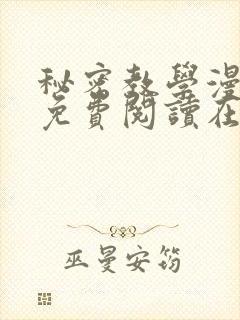 秘密教學漫
免費閱讀在
巫曼安筠